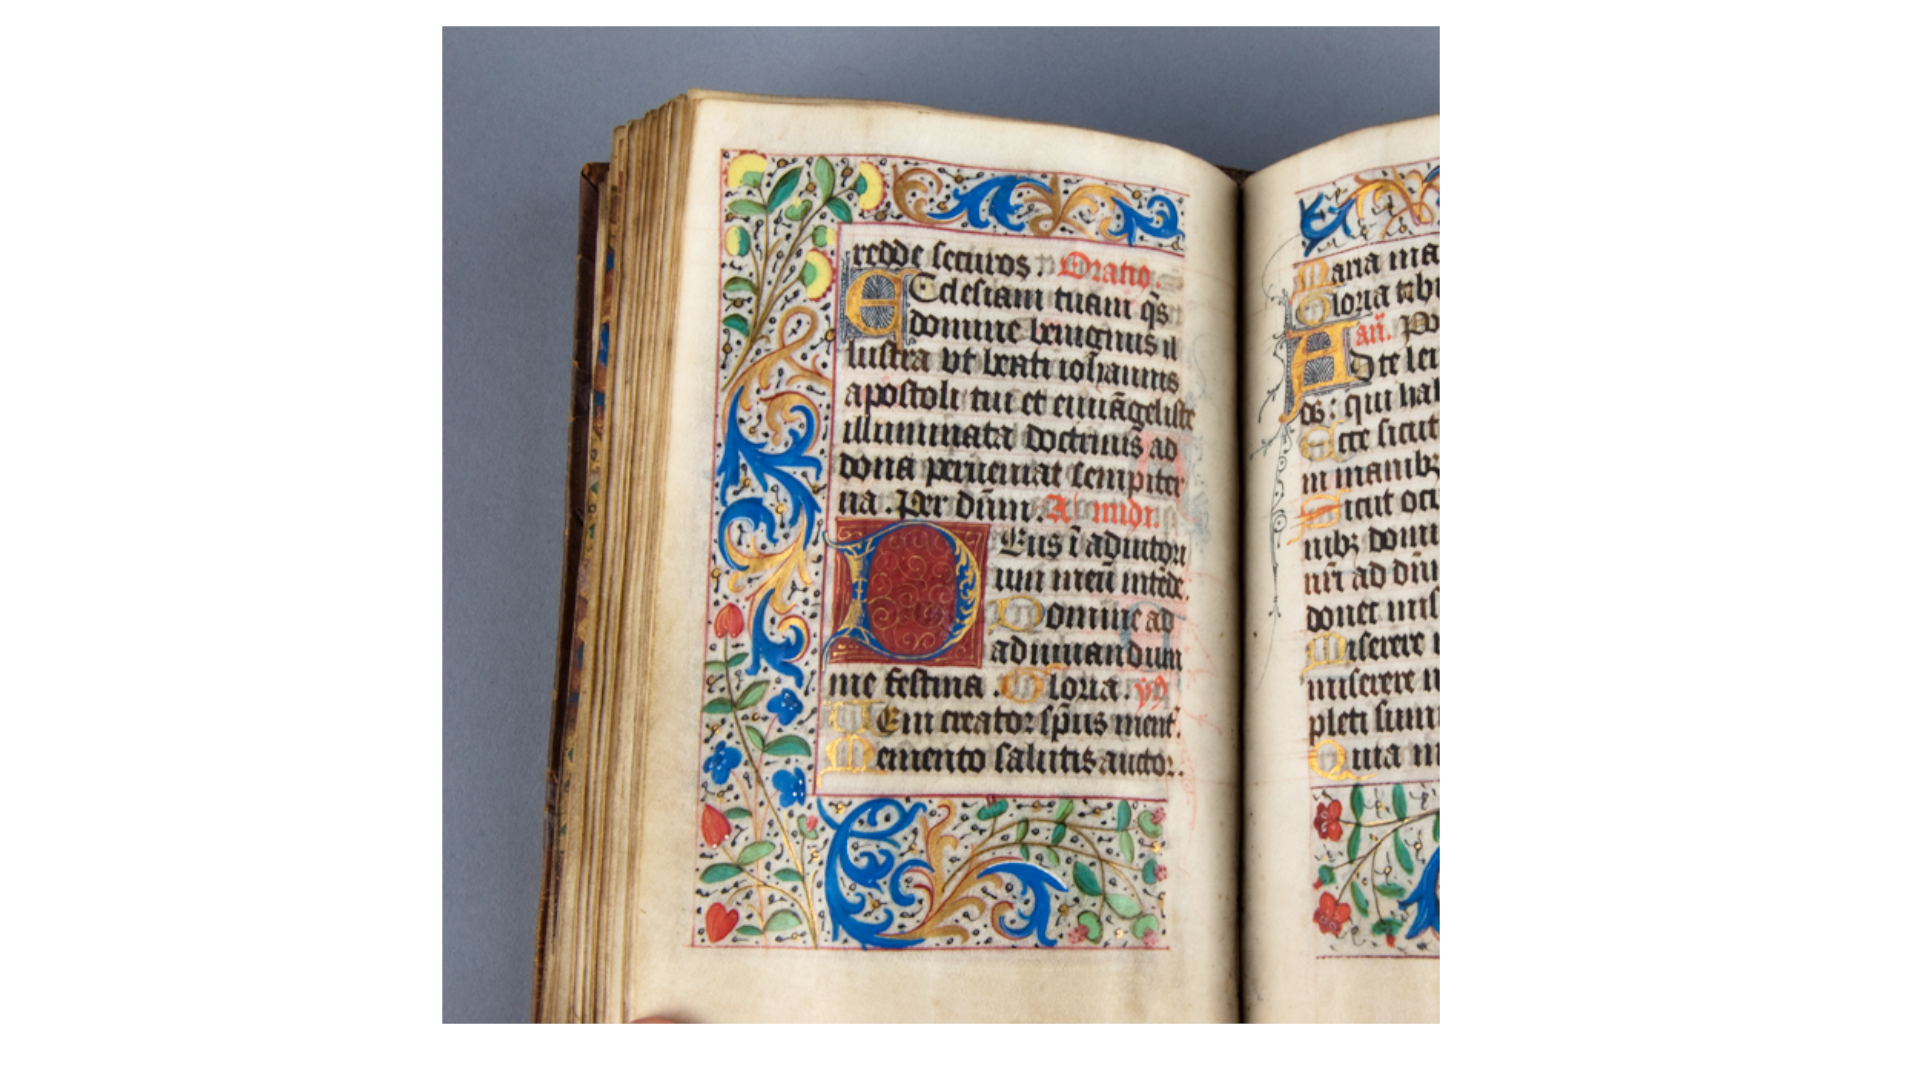 redde securos : Oratio.
Ecclesiam tuam qs̄
domine benignus il
lustra vt beati ioh̄annis
apostoli tui et euuāgeliste
illuminata doctrinis ad
dona perueniat sempiter
na . Per dūm . Ad midi.
Deus ī adiutori
um meū intēde.
Domine ad
adiuuandum
me festina . Gloria . yp̄
Ueni creator sp̄us ment̄.
Memento salutis auctor.
Maria ma
Gloria tibi
an̄.
Ad te leu
qui hab
Ecce sicut
in manibꝫ
Sicut ocu
nibꝫ domi
nr̄i ad dn̄m
donec mis
Miserere n
miserere n
pleti sum
Quia m